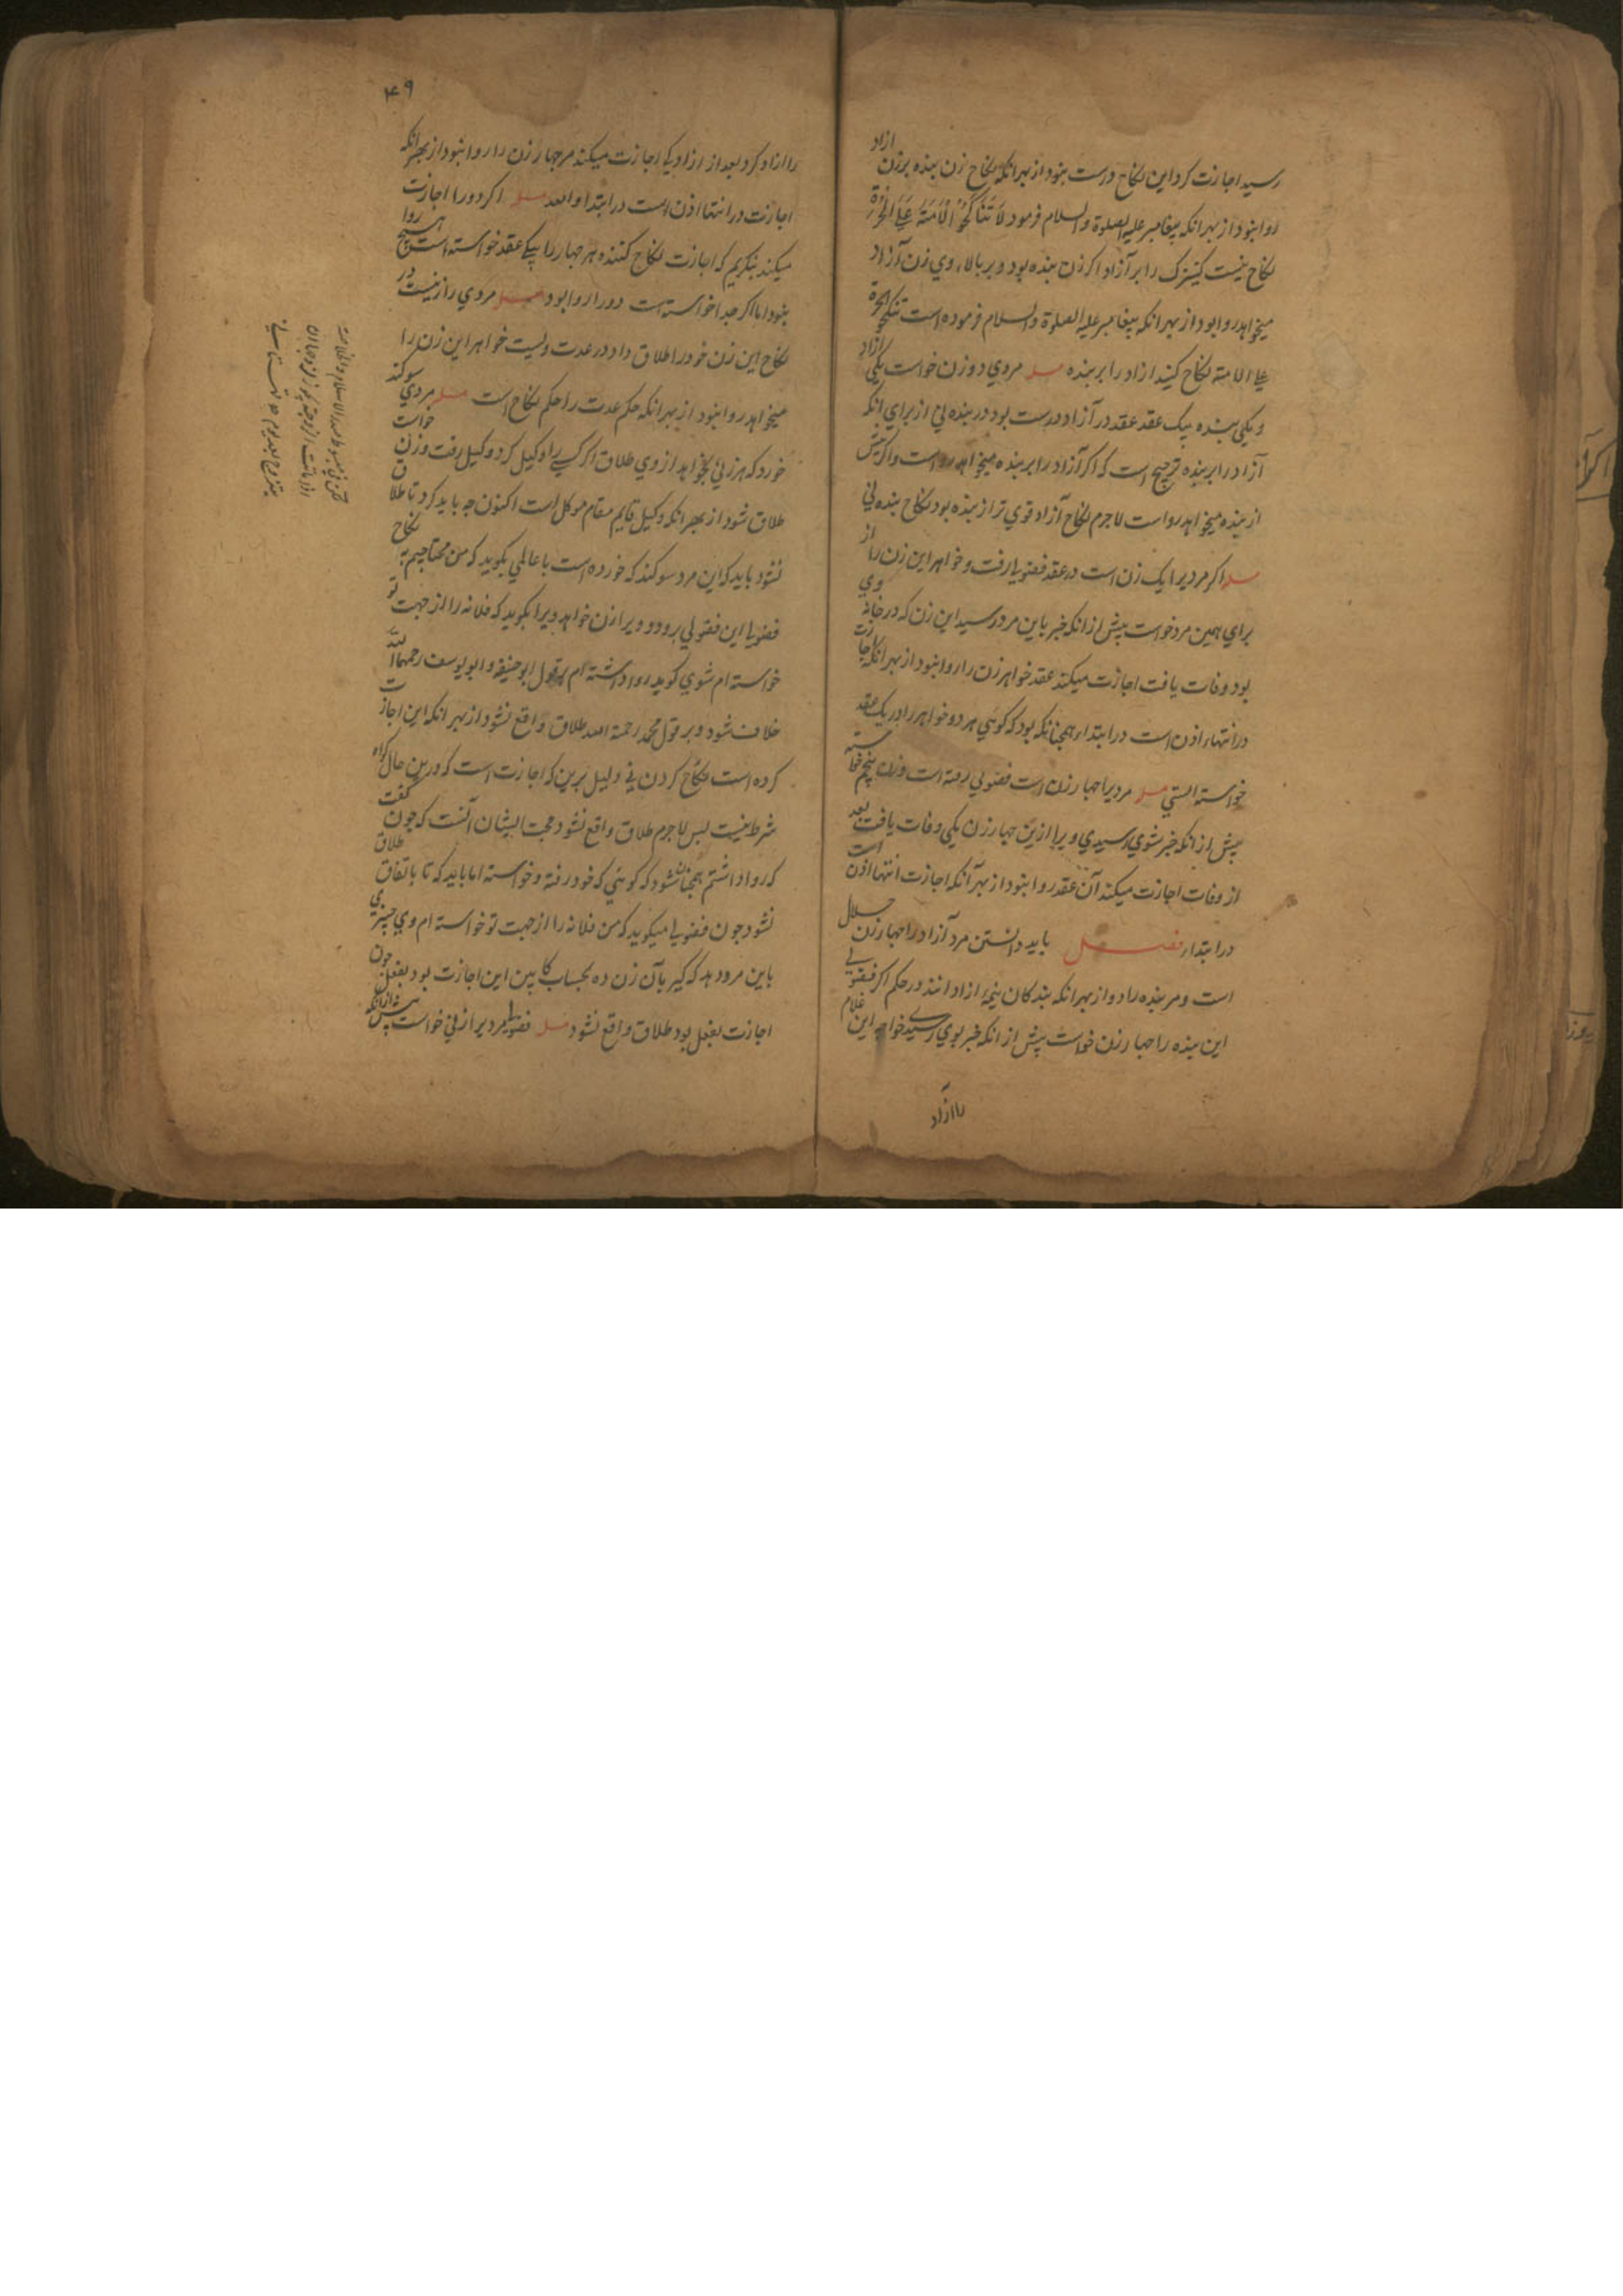 رسید اجازت کرد این نکاح درست بنود از بهر انکه نکاح زن بنده بر زن ازاد
روا بنود از بهر انکه پیغامبر علیه الصلوة والسلام فرمود لَا تَنَاكَحُوا الْاَمَةَ عَلَى الْحُرَّةِ
نکاح نیست کنیزک را بر آزاد اکر زن بنده بود و بر بالاء وی زن آزاد
میخواهد روا بود از بهر انکه پیغامبر علیه الصلوة والسلام فرموده است تنکحوا الحرة
علی الامة نکاح کنید ازاد را بر بنده مسله مردی دو زن خواست یکی ازاد
و یکی بنده بیک عقد عقد در آزاد درست بود در بنده نی از برای انکه
آزاد را بر بنده ترجیح است که اکر آزاد را بر بنده میخواهد رواست و اکر پیش
از بنده میخواهد رواست لاجرم نکاح آزاد قوی تر از بنده بود نکاح بنده نی
مسله اکر مردیرا یک زن است در عقد فضولیا رفت و خواهر این زن را از
برای همین مرد خواست پیش از انکه خبر باین مرد رسید این زن که در خانهٔ وی
بود وفات یافت اجازت میکند عقد خواهر زن را روا بنود از بهر انکه اجازت
در انتهاء اذن است در ابتداء همچنانکه بود که کوئی هر دو خواهر را در یک عقد
خواسته استی مسله مردیرا چهار زن است فضولی رفته است و زن پنجم خواسته
پیش از انکه خبر شوی رسیدی ویرا ازین چهار زن یکی وفات یافت بعد
از وفات اجازت میکند آن عقد روا بنود از بهر آنکه اجازت انتها اذن است
در ابتدا فصل باید دانستن مرد آزاد را چهار زن حلال
است و مر بنده را دو از بهر انکه بندکان نیمهٔ ازادانند در حکم اکر فضولی
این بنده را چهار زن خواست پیش از انکه خبر بوی رسید خواجه این غلام
را آزاد
۴۹
را ازاد کرد بعد از ازادیکی اجازت میکند مر چهار زن را روا بنود از بهر انکه
اجازت در انتها اذن است در ابتدا مسله اکر دو را اجازت
میکند بنکریم که اجازت نکاح کننده هر چهار را بیک عقد خواسته است هیچ روا
بنود اما اکر جدا خواسته است دو را روا بود مسله مردی را زنیست در
نکاح این زن خود را طلاق داد در عدت ویست خواهر این زن را
میخواهد روا بنود از بهر انکه حکم عدت را حکم نکاح است مسله مردی سوکند
خورد که هر زنی بخواهد از وی طلاق اکر کسی را وکیل کرد وکیل رفت و زن خواست
طلاق شود از بهر انکه وکیل قایم مقام موکل است اکنون چه باید کرد تا طلاق
نشود باید که این مرد سوکند که خورده است با عالمی بکوید که من محتاجیم به نکاح
فضولیا این فضولی برود و ویرا زن خواهد ویرا بکوید که فلانه را از جهت تو
خواسته ام شوی کوید روا داشته ام بر قول ابو حنیفه و ابو یوسف رحمهما الله
خلاف شود و بر قول محمد رحمة الله طلاق واقع نشود از بهر انکه این اجازت
کرده است نکاح کردن نی دلیل برین که اجازت است که درین حال کواه
شرط نیست پس لاجرم طلاق واقع نشود حجت ایشان آنست که چون کفت
که روا داشتم همچنان شود که کوئی که خود رفته و خواسته اما باید که تا باتفاق طلاق
نشود چون فضولیا میکوید که من فلانه را از جهت تو خواسته ام وی چیزی
باین مرد دهد که کیر بآن زن ده بحساب کابین این اجازت بود بفعل چون
اجازت بفعل بود طلاق واقع نشود مسله فضولیا مردیرا زنی خواست پیش از انکه